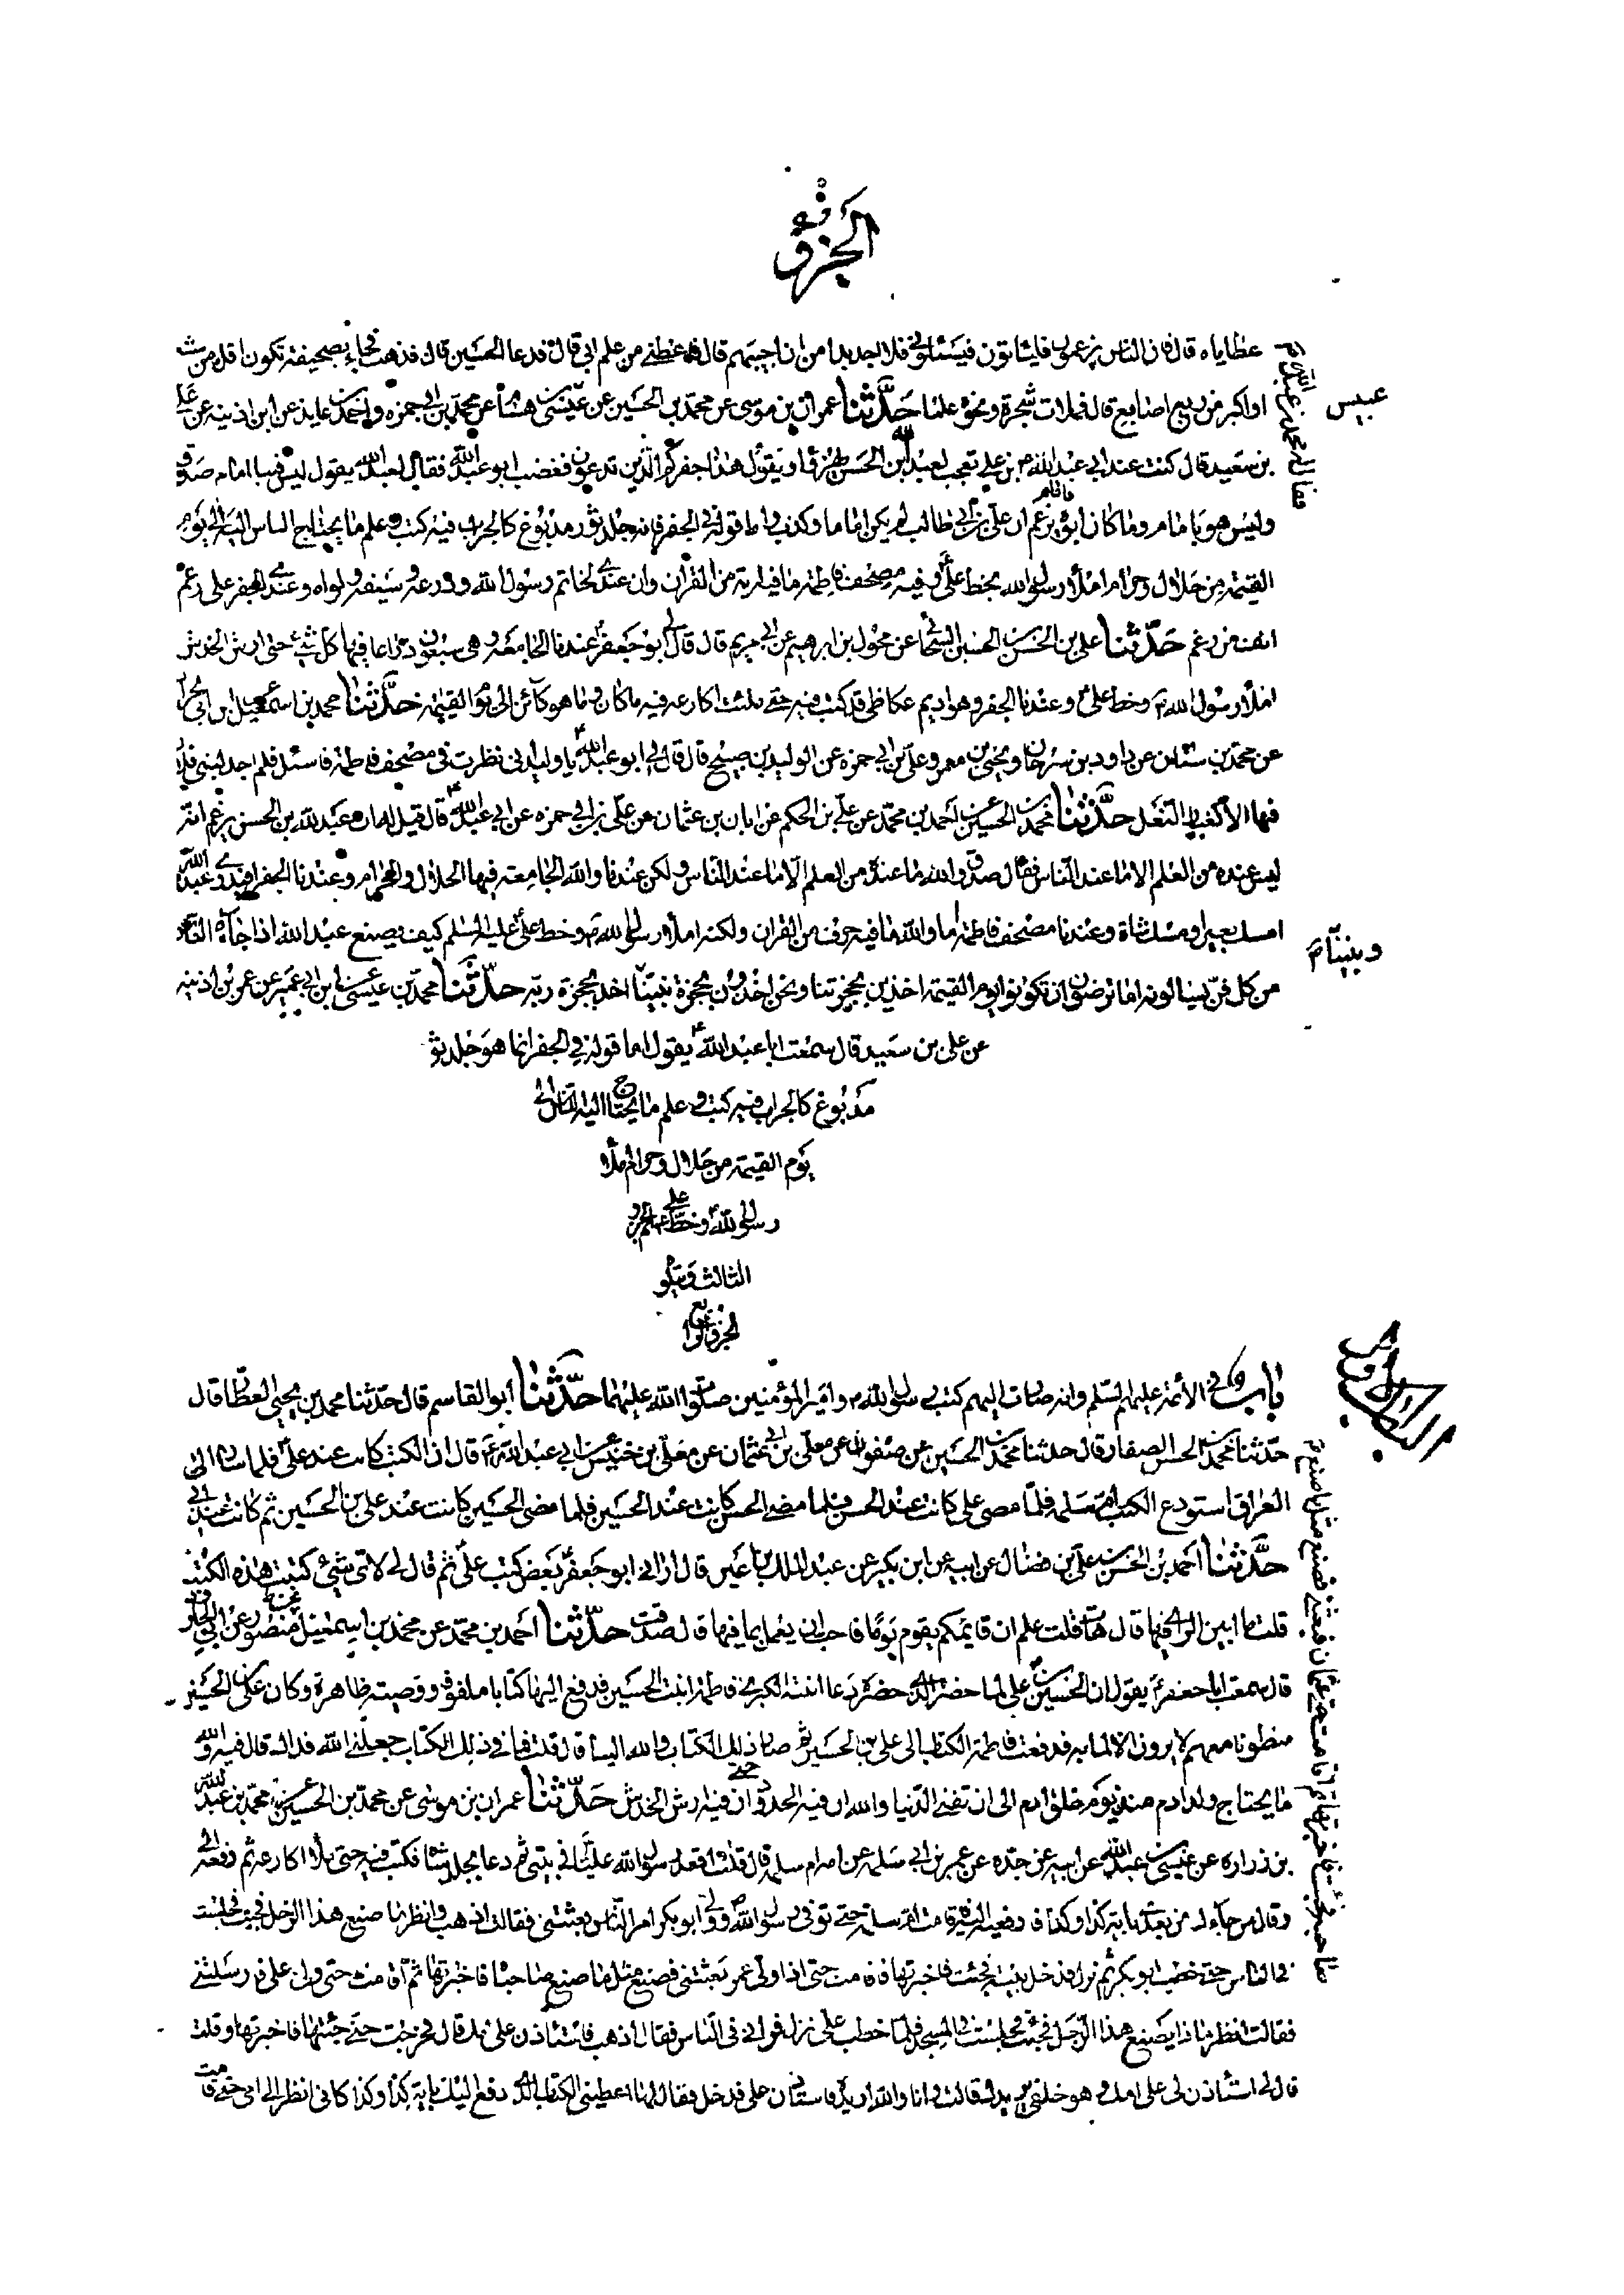 الجزؤ
عطاياه قال فان الناس يزعمون فليشاتون فيسئلوني فلا اجد بدا من ان اجيبهم قال فاعطني من علم ابي قال فدعا الحسين قال فذهب فجاء بصحيفة تكون اقل من شبر
او اكبر من ربع اصابع قال فملات شجرة ونحوه علما حدّثنا عمران بن موسى عن محمد بن الحسين عن عبيس بن هشام عن محمد بن ابي حمزه واحمد بن عايذ عن ابن اذينه عن علي
بن سعيد قال كنت عند ابي عبد الله بن علي تعجب لعبد الله بن الحسن يهزء ويقول هذا جفركم الذين تدعون فغضب ابو عبد الله فقال لعبد الله يقول ليس فينا امام صدق
وليس هو بامام وما كان ابوه يزعم ان علي بن ابي طالب لم يكن اماما وكذب واما قوله في الجفر فانه جلد ثور مدبوغ كالجراب فيه كتب وعلم ما يحتاج الناس اليه الى يوم
القيمة من حلال وحرام املاء رسول الله بخط علي وفيه مصحف فاطمة ما فيه اية من القران وان عندي لخاتم رسول الله ودرعه وسيفه ولواه وعندي الجفر على رغم
انف من رغم حدّثنا علي بن الحسن بن الحسين السنحا عن مخول بن ابرهيم عن ابي مريم قال قال لي ابو جعفر عندنا الجامعة وهي سبعون ذراعا فيها كل شيء حتى ارش الخدش
املاء رسول الله وخط علي وعندنا الجفر وهو اديم عكاظي قد كتب فيه حتى ملئت اكارعه فيه ما كان وما هو كائن الى يوم القيمة حدّثنا محمد بن اسمعيل عن ابن ابي نجران
عن محمد بن سنان عن داود بن سرحان ويحيى بن معمر وعلي بن ابي حمزه عن الوليد بن صبيح قال قال لي ابو عبد الله يا وليد اني نظرت في مصحف فاطمة فاسئل فلم اجد لبني فلان
فيها الا كغبار النعل حدّثنا محمد بن الحسين عن احمد بن محمد عن علي بن الحكم عن ابان بن عثمان عن علي بن ابي حمزه عن ابي عبد الله قال قيل له ان عبد الله بن الحسن يزعم انه
ليس عنده من العلم الا ما عند الناس فقال صدق والله ما عنده من العلم الا ما عند الناس ولكن عندنا والله الجامعة فيها الحلال والحرام وعندنا الجفر افيدري عبد الله
امسك بعير او مسك شاة وعندنا مصحف فاطمة اما والله ما فيه حرف من القران ولكنه املاء رسول الله وخط علي عليه السلم كيف يصنع عبد الله اذا جاءه الناس
من كل فن يسالونه اما ترضون ان تكونوا يوم القيمة اخذين بحجزتنا ونحن اخذون بحجزة نبينا اخذ بحجزة ربه حدّثنا محمد بن عيسى عن ابن ابي عمير عن عمر بن اذينه
عن علي بن سعيد قال سمعت ابا عبد الله يقول اما قوله في الجفر انما هو جلد ثو
مدبوغ كالجراب فيه كتب وعلم ما يحتاج اليه الناس الى
يوم القيمة من حلال وحرام املاء
رسول الله وخط علي تم الجزو
الثالث ويتلو
الجزو الرابع
باب في الأئمة عليهم السلم وانه صارت اليهم كتب رسول الله وامير المؤمنين صلوات الله عليهما حدّثنا ابو القاسم قال حدثنا محمد بن يحيى العطار قال
حدّثنا محمد بن الحسن الصفار قال حدثنا محمد بن الحسين عن صفوان عن معلى بن ابي عثمان عن معلى بن خنيس عن ابي عبد الله قال ان الكتب كانت عند علي فلما سار الى
العراق استودع الكتب ام سلمه فلما مضى علي كانت عند الحسن فلما مضى الحسن كانت عند الحسين فلما مضى الحسين كانت عند علي بن الحسين ثم كانت عند ابي
حدّثنا احمد بن الحسن بن علي بن فضال عن ابيه عن ابن بكير عن عبد الملك بن اعين قال اراني ابو جعفر بعض كتب علي ثم قال لي لاي شيء كتبت هذه الكتب
قلت ما ابين الراي فيها قال هات قلت علم ان قايمكم يقوم يوما فاحب ان يعمل بما فيها قال صدقت حدّثنا احمد بن محمد عن محمد بن اسمعيل عن منصور عن ابي الجارود
قال سمعت ابا جعفر يقول ان الحسين بن علي لما حضره الذي حضره دعا ابنته الكبرى فاطمة ابنت الحسين فدفع اليها كتابا ملفوفا ووصية ظاهرة وكان علي بن الحسين
مبطونا معهم لا يرون الا لما به فدفعت فاطمة الكتاب الى علي بن الحسين ثم صار ذلك الكتاب والله الينا قال قلت فما في ذلك الكتاب جعلني الله فداك قال فيه والله
ما يحتاج ولد ادم منذ يوم خلق ادم الى ان تفنى الدنيا والله ان فيه الحدود حتى ان فيه ارش الخدش حدّثنا عمران بن موسى عن محمد بن الحسين عن محمد بن عبد الله
بن زرارة عن عيسى بن عبد الله عن ابيه عن جده عن عمر بن ابي سلمه عن امه ام سلمه قال قلت اقعد رسول الله عليا في بيتي ثم دعا بجلد شاة فكتب فيه حتى ملا اكارعه ثم دفعه الي
وقال من جاءك من بعدي باية كذا وكذا فادفعيه اليه فاقامت ام سلمه حتى توفي رسول الله وولي ابو بكر امر الناس بعثتني فقالت اذهب وانظر ما صنع هذا الرجل فجئت فجلست
في الناس حتى خطب ابو بكر ثم نزل فدخل بيته فجئت فاخبرتها فاقامت حتى اذا ولي عمر بعثتني فصنع مثل ما صنع صاحبه فاخبرتها ثم اقامت حتى ولي علي فارسلتني
فقالت انظر ما ذا يصنع هذا الرجل فجئت فجلست في المسجد فلما خطب علي نزل فراني في الناس فقال اذهب فاستاذن على امك قال فخرجت حتى جئتها فاخبرتها وقلت
قال لي استاذن لي على امك وهو خلفي يريدك قالت وانا والله اريده فاستاذن علي فدخل فقال لها اعطيني الكتاب الذي دفع اليك باية كذا وكذا كاني انظر الى امي حتى قامت
عبيس
ونبينا م